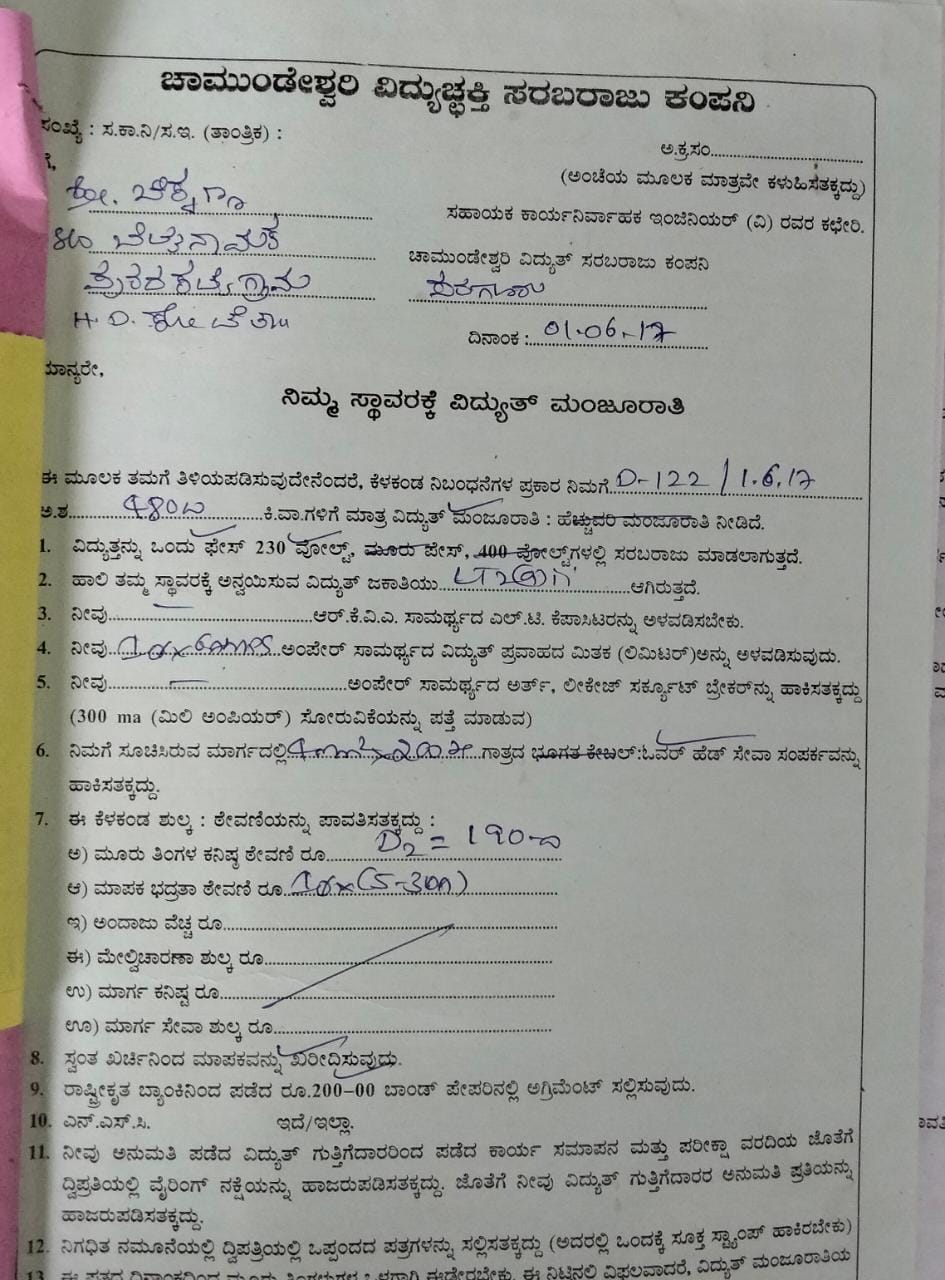 ಚಾಮುಂಡೇಶ್ವರಿ ವಿದ್ಯುಚ್ಛಕ್ತಿ ಸರಬರಾಜು ಕಂಪನಿ
ಸಂಖ್ಯೆ : ಸ.ಕಾ.ನಿ/ಸ.ಇ. (ತಾಂತ್ರಿಕ) :
ಅ.ಕ್ರ.ಸಂ.
ಗೆ,
(ಅಂಚೆಯ ಮೂಲಕ ಮಾತ್ರವೇ ಕಳುಹಿಸತಕ್ಕದ್ದು)
ಸಹಾಯಕ ಕಾರ್ಯನಿರ್ವಾಹಕ ಇಂಜಿನಿಯರ್ (ವಿ) ರವರ ಕಛೇರಿ.
ಚಾಮುಂಡೇಶ್ವರಿ ವಿದ್ಯುತ್ ಸರಬರಾಜು ಕಂಪನಿ
H.D. ಕೋಟೆ ತಾ॥
ದಿನಾಂಕ : 01.06.17
ಮಾನ್ಯರೇ,
ನಿಮ್ಮ ಸ್ಥಾವರಕ್ಕೆ ವಿದ್ಯುತ್ ಮಂಜೂರಾತಿ
ಈ ಮೂಲಕ ತಮಗೆ ತಿಳಿಯಪಡಿಸುವುದೇನೆಂದರೆ, ಕೆಳಕಂಡ ನಿಬಂಧನೆಗಳ ಪ್ರಕಾರ ನಿಮಗೆ D-122 / 1.6.17
ಅ.ಶ. 480ω ಕಿ.ವಾ.ಗಳಿಗೆ ಮಾತ್ರ ವಿದ್ಯುತ್ ಮಂಜೂರಾತಿ : ಹೆಚ್ಚುವರಿ ಮಂಜೂರಾತಿ ನೀಡಿದೆ.
1. ವಿದ್ಯುತ್ತನ್ನು ಒಂದು ಫೇಸ್ 230 ವೋಲ್ಟ್, ಮೂರು ಪೇಸ್, 400 ವೋಲ್ಟ್‌ಗಳಲ್ಲಿ ಸರಬರಾಜು ಮಾಡಲಾಗುತ್ತದೆ.
2. ಹಾಲಿ ತಮ್ಮ ಸ್ಥಾವರಕ್ಕೆ ಅನ್ವಯಿಸುವ ವಿದ್ಯುತ್ ಜಕಾತಿಯು ಆಗಿರುತ್ತದೆ.
3. ನೀವು ಆರ್.ಕೆ.ವಿ.ಎ. ಸಾಮರ್ಥ್ಯದ ಎಲ್.ಟಿ. ಕೆಪಾಸಿಟರನ್ನು ಅಳವಡಿಸಬೇಕು.
4. ನೀವು ಅಂಪೇರ್ ಸಾಮರ್ಥ್ಯದ ವಿದ್ಯುತ್ ಪ್ರವಾಹದ ಮಿತಕ (ಲಿಮಿಟರ್)ಅನ್ನು ಅಳವಡಿಸುವುದು.
5. ನೀವು ಅಂಪೇರ್ ಸಾಮರ್ಥ್ಯದ ಅರ್ತ್, ಲೀಕೇಜ್ ಸರ್ಕ್ಯೂಟ್ ಬ್ರೇಕರ್‌ನ್ನು ಹಾಕಿಸತಕ್ಕದ್ದು
(300 ma (ಮಿಲಿ ಅಂಪಿಯರ್) ಸೋರುವಿಕೆಯನ್ನು ಪತ್ತೆ ಮಾಡುವ)
6. ನಿಮಗೆ ಸೂಚಿಸಿರುವ ಮಾರ್ಗದಲ್ಲಿ ಗಾತ್ರದ ಭೂಗತ ಕೇಬಲ್:ಓವರ್ ಹೆಡ್ ಸೇವಾ ಸಂಪರ್ಕವನ್ನು
ಹಾಕಿಸತಕ್ಕದ್ದು.
7. ಈ ಕೆಳಕಂಡ ಶುಲ್ಕ : ಠೇವಣಿಯನ್ನು ಪಾವತಿಸತಕ್ಕದ್ದು :
ಅ) ಮೂರು ತಿಂಗಳ ಕನಿಷ್ಠ ಠೇವಣಿ ರೂ. D2 = 190-
ಆ) ಮಾಪಕ ಭದ್ರತಾ ಠೇವಣಿ ರೂ. 1φx(5-30A)
ಇ) ಅಂದಾಜು ವೆಚ್ಚ ರೂ.
ಈ) ಮೇಲ್ವಿಚಾರಣಾ ಶುಲ್ಕ ರೂ.
ಉ) ಮಾರ್ಗ ಕನಿಷ್ಟ ರೂ.
ಊ) ಮಾರ್ಗ ಸೇವಾ ಶುಲ್ಕ ರೂ.
8. ಸ್ವಂತ ಖರ್ಚಿನಿಂದ ಮಾಪಕವನ್ನು ಖರೀದಿಸುವುದು.
9. ರಾಷ್ಟ್ರೀಕೃತ ಬ್ಯಾಂಕಿನಿಂದ ಪಡೆದ ರೂ.200-00 ಬಾಂಡ್ ಪೇಪರಿನಲ್ಲಿ ಅಗ್ರಿಮೆಂಟ್ ಸಲ್ಲಿಸುವುದು.
10. ಎನ್.ಎಸ್.ಸಿ. ಇದೆ/ಇಲ್ಲಾ.
11. ನೀವು ಅನುಮತಿ ಪಡೆದ ವಿದ್ಯುತ್ ಗುತ್ತಿಗೆದಾರರಿಂದ ಪಡೆದ ಕಾರ್ಯ ಸಮಾಪನ ಮತ್ತು ಪರೀಕ್ಷಾ ವರದಿಯ ಜೊತೆಗೆ
ದ್ವಿಪ್ರತಿಯಲ್ಲಿ ವೈರಿಂಗ್ ನಕ್ಷೆಯನ್ನು ಹಾಜರುಪಡಿಸತಕ್ಕದ್ದು. ಜೊತೆಗೆ ನೀವು ವಿದ್ಯುತ್ ಗುತ್ತಿಗೆದಾರರ ಅನುಮತಿ ಪ್ರತಿಯನ್ನು
ಹಾಜರುಪಡಿಸತಕ್ಕದ್ದು.
12. ನಿಗಧಿತ ನಮೂನೆಯಲ್ಲಿ ದ್ವಿಪತ್ರಿಯಲ್ಲಿ ಒಪ್ಪಂದದ ಪತ್ರಗಳನ್ನು ಸಲ್ಲಿಸತಕ್ಕದ್ದು (ಅದರಲ್ಲಿ ಒಂದಕ್ಕೆ ಸೂಕ್ತ ಸ್ಟ್ಯಾಂಪ್ ಹಾಕಿರಬೇಕು)
13. ಈ ಪತ್ರದ ದಿನಾಂಕದಿಂದ ಮೂರು ತಿಂಗಳುಗಳ ಒಳಗಾಗಿ ಈಡೇರಬೇಕು. ಈ ನಿಟ್ಟಿನಲ್ಲಿ ವಿಫಲವಾದರೆ, ವಿದ್ಯುತ್ ಮಂಜೂರಾತಿಯ